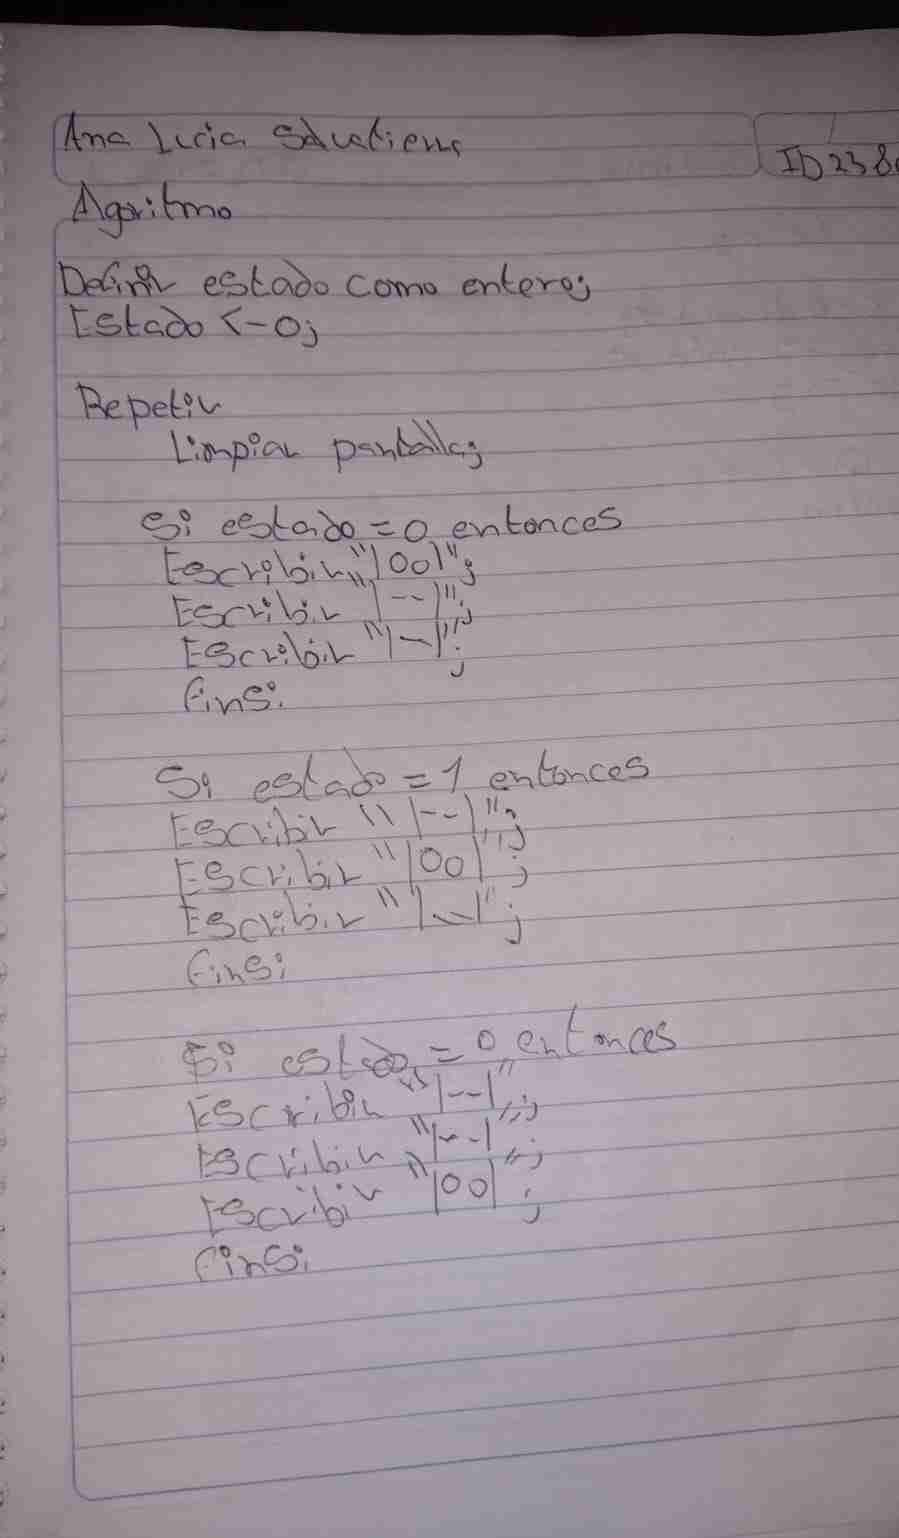 Ana Lucia
ID 238
Agoritmo
Definir estado como entero;
Estado <-0;
Repetir
Limpiar pantalla;
Si estado = 0 entonces
Escribir "|00|";
Escribir "|--|";
Escribir "|-|";
finsi
Si estado = 1 entonces
Escribir "|--|";
Escribir "|00|";
Escribir "|--|";
finsi
Si estado = 0 entonces
Escribir "|--|";
Escribir "|--|";
Escribir "|00|";
finsi